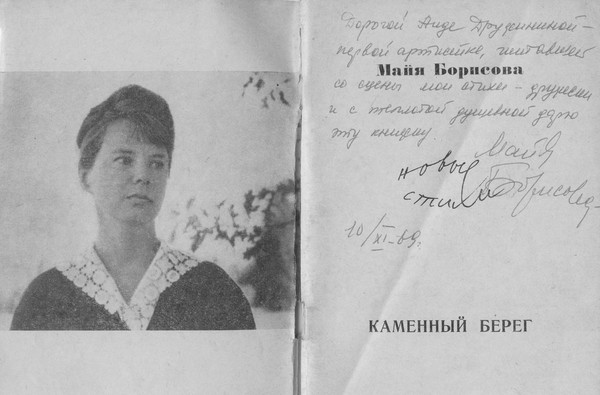 Дорогой Аиде Дружининой –
первой артистке, читавшей
Майя Борисова
со сцены мои стихи – дружески
и с теплотой душевной дарю
эту книжку.
Майя
новые
Борисова
стихи
10/XI-69.
КАМЕННЫЙ БЕРЕГ